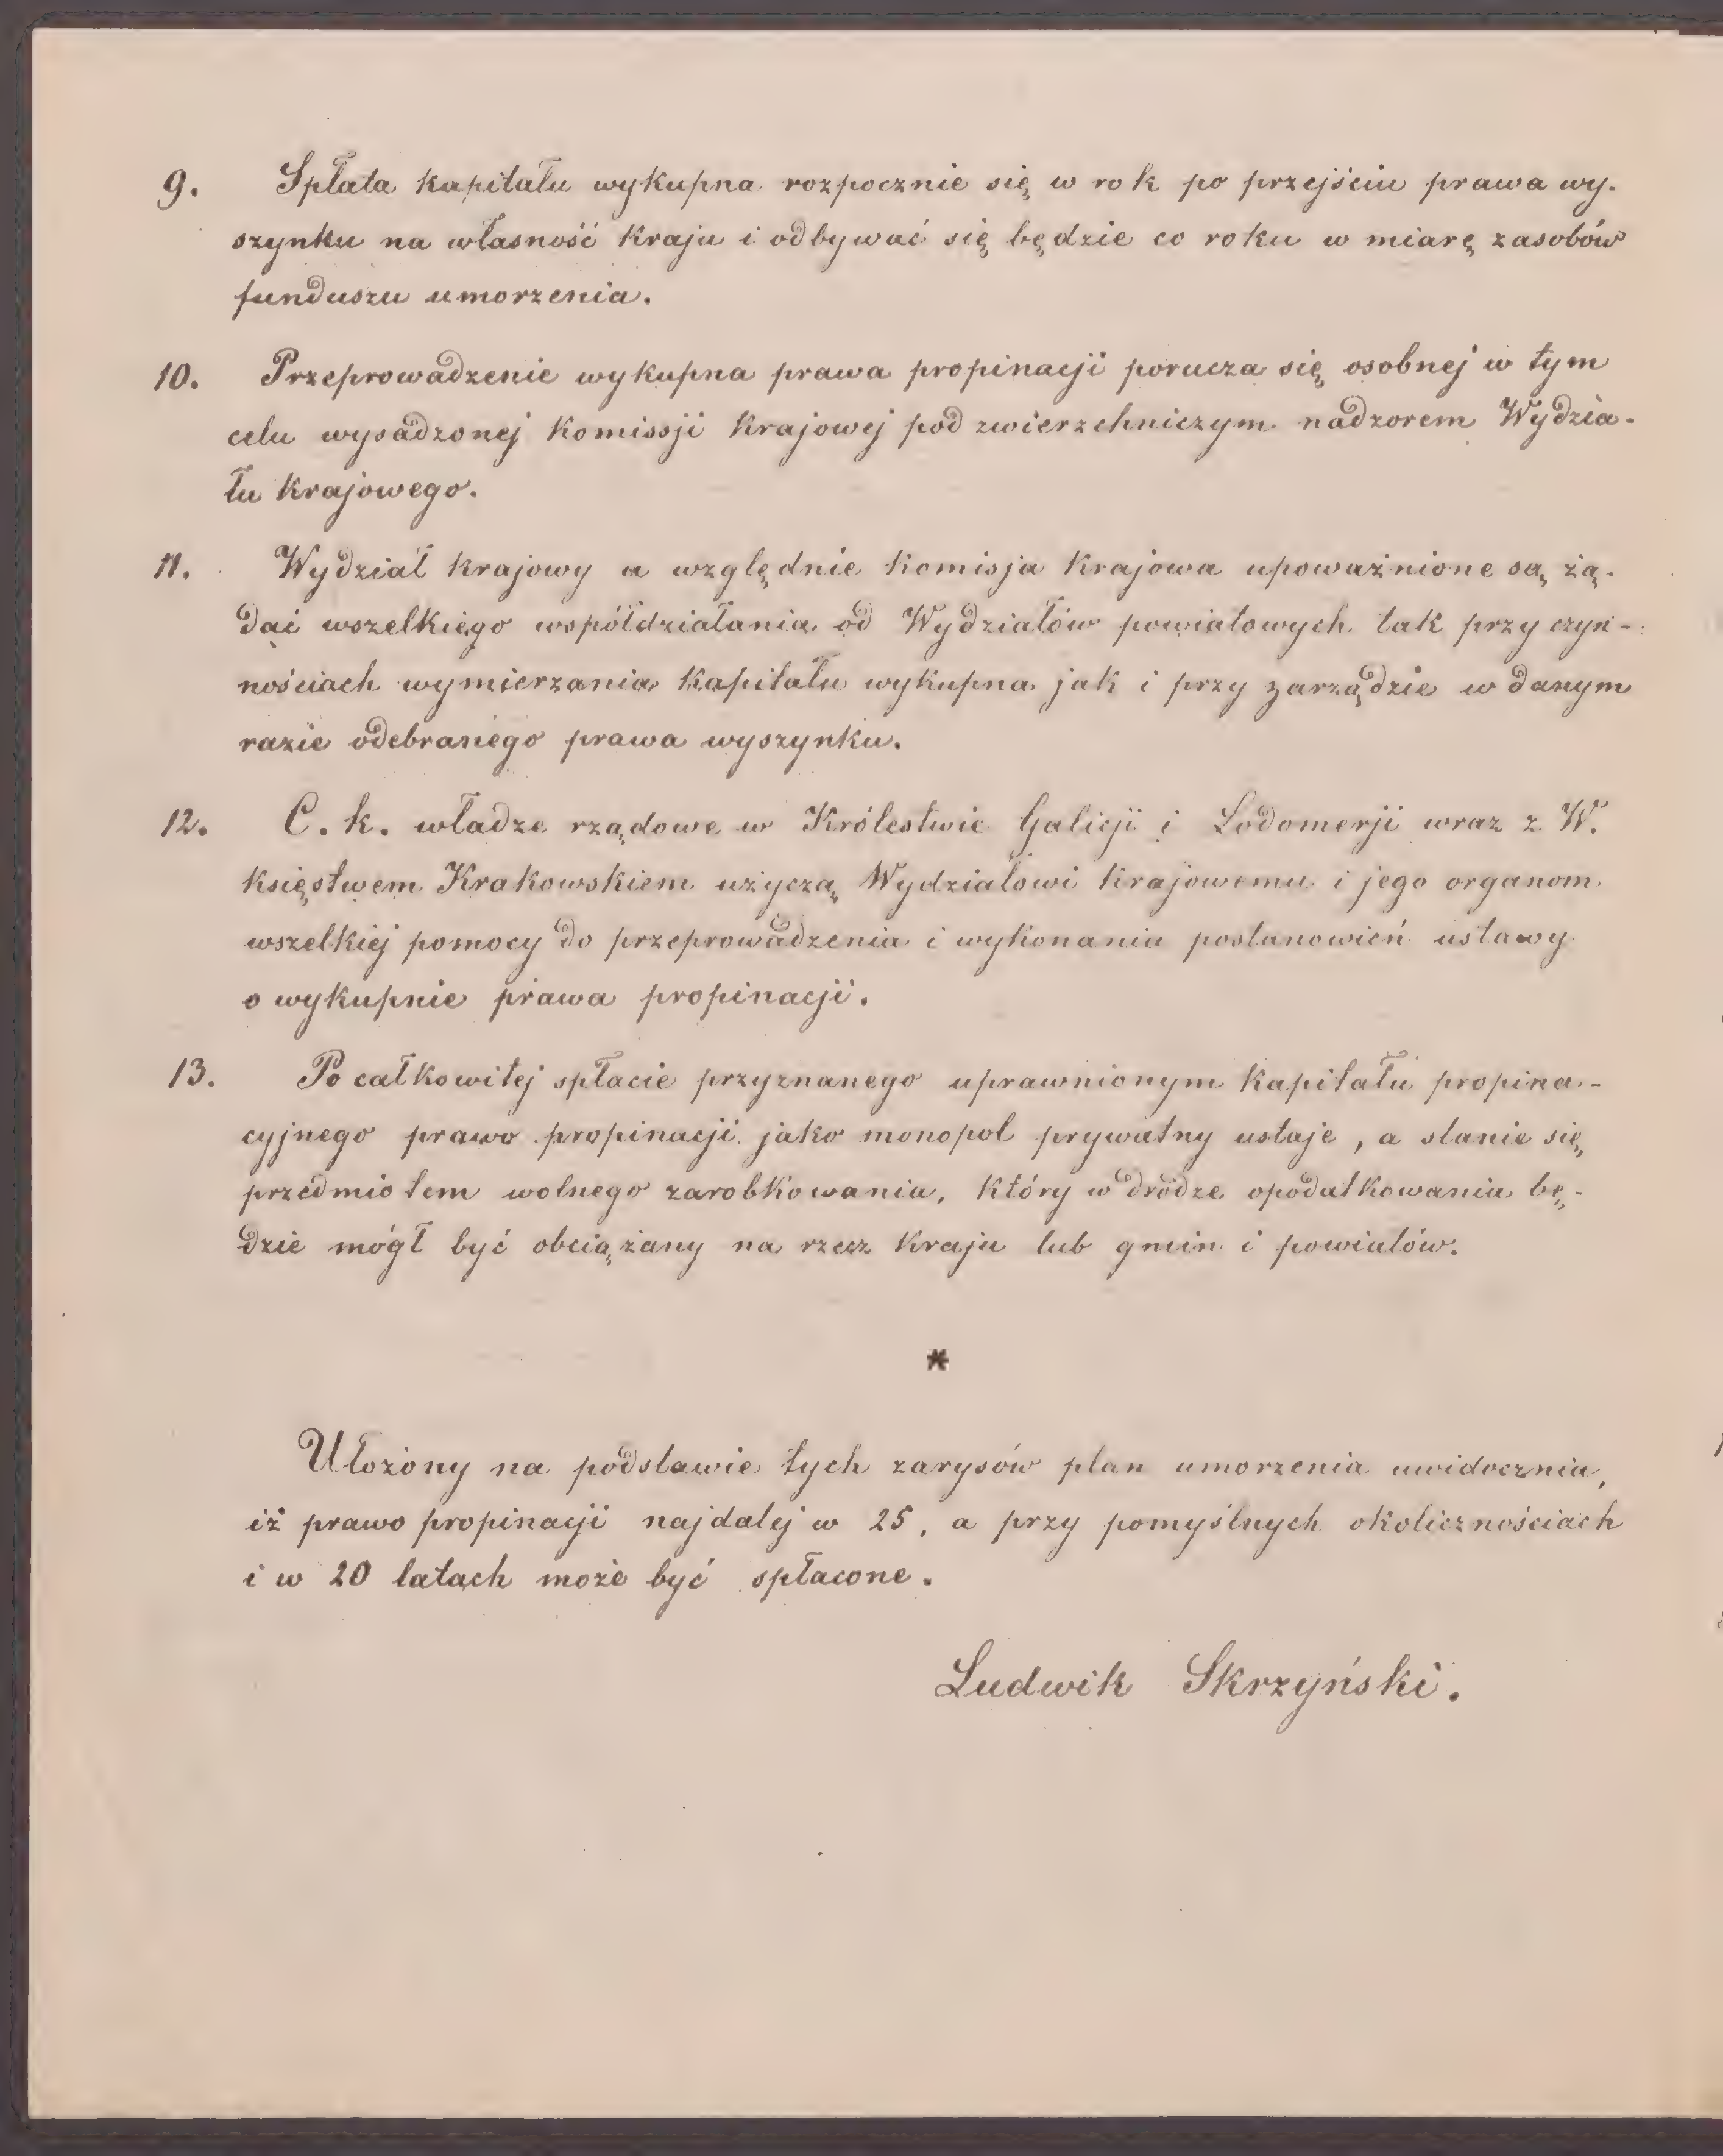 9. Spłata kapitału wykupna rozpocznie się w rok po przejściu prawa wy-
szynku na własność kraju i odbywać się będzie co roku w miarę zasobów
funduszu umorzenia.
10. Przeprowadzenie wykupna prawa propinacji porucza się osobnej w tym
celu wysadzonej Komissji Krajowej pod zwierzchniczym nadzorem Wydzia-
łu Krajowego.
11. Wydział Krajowy a względnie Komisja Krajowa upoważnione są żą-
dać wszelkiego współdziałania od Wydziałów powiatowych tak przy czyn-
nościach wymierzania Kapitału wykupna jak i przy zarządzie w danym
razie odebranego prawa wyszynku.
12. C. k. władze rządowe w Królestwie Galicji i Lodomerji wraz z W.
księstwem Krakowskiem użyczą Wydziałowi Krajowemu i jego organom
wszelkiej pomocy do przeprowadzenia i wykonania postanowień ustawy
o wykupnie prawa propinacji.
13. Po całkowitej spłacie przyznanego uprawnionym Kapitału propina-
cyjnego prawo propinacji jako monopol prywatny ustaje, a stanie się
przedmiotem wolnego zarobkowania, który w drodze opodatkowania bę-
dzie mógł być obciążany na rzecz Kraju lub gmin i powiatów.
*
Ułożony na podstawie tych zarysów plan umorzenia uwidocznia,
iż prawo propinacji najdalej w 25, a przy pomyślnych okolicznościach
i w 20 latach może być spłacone.
Ludwik Skrzyński.